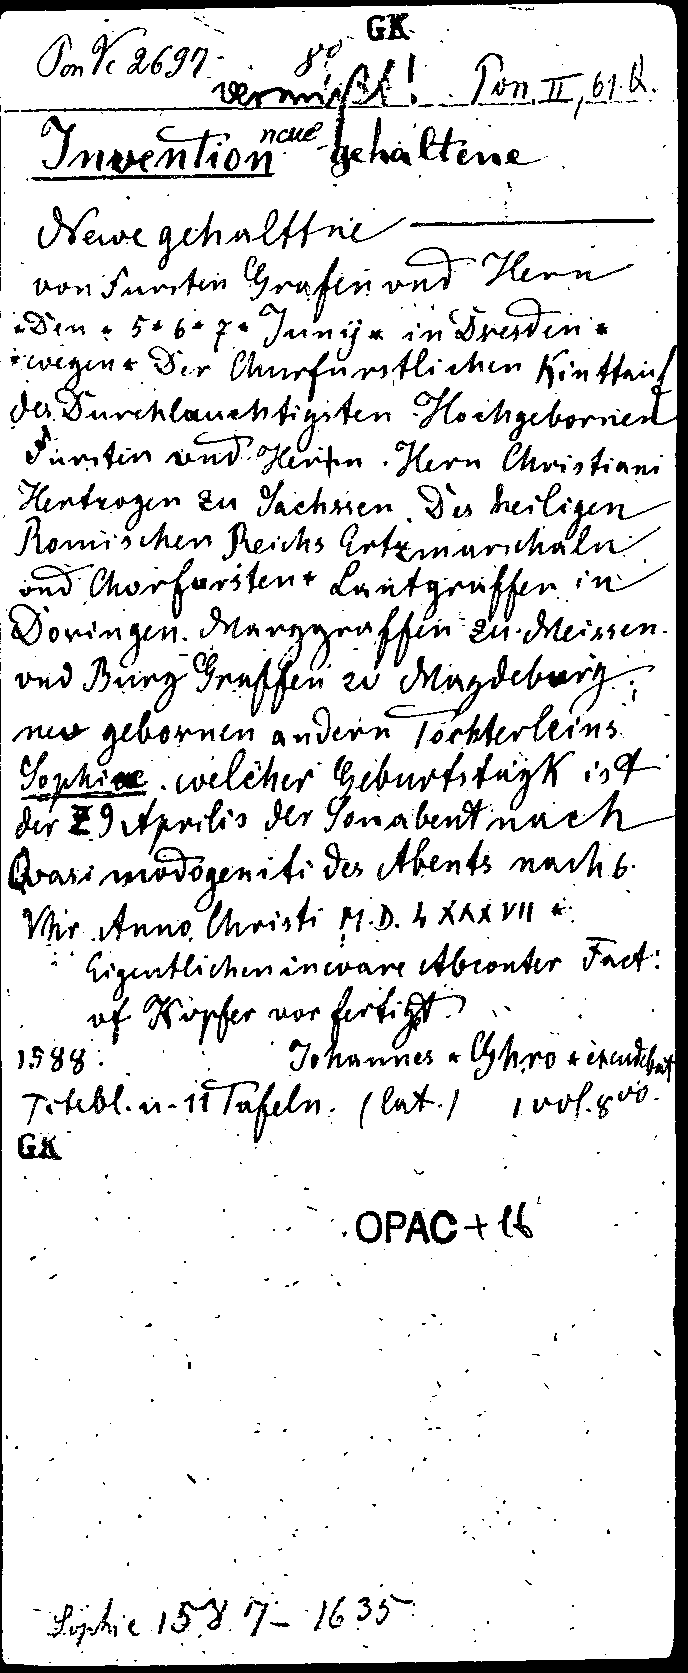 GK
Pon Vc 2697. 8º
vermißt! Pon. II, 61.Q.
Invention neue gehaltene
Newe gehalttne
von Fursten Grafen und Hern
*Den * 5*6*7* Junÿ * in Dresden *
*wegen * Der Churfurstlichen Kinttauf
des Durchlauchtigsten Hochgebornen
Fursten und Herrn. Hern Christiani
Hertzogen zu Sachssen. Des heiligen
Romischen Reichs Ertzmarschaln
und Chorfursten * Lantgraffen in
Doringen. Marggraffen zu Meissen.
und Burg Graffen zu Magdeburg.
new gebornen andern Töchterleins
Sophiae. welcher Geburtstagk ist
der 29 Aprilis der Sonabent nach
Quasimodogeniti des Abents nach 6.
Vhr. Anno. Christi M.D.LXXXVII *
Eigentlichen Abconter Fact:
uf Küpfer vorfertigt
1588. Johannes * * excudebat
Titelbl. u. 11 Tafeln. (lat.) 1 vol. 8vo.
GK
OPAC + 16
Sophie 1587 – 1635